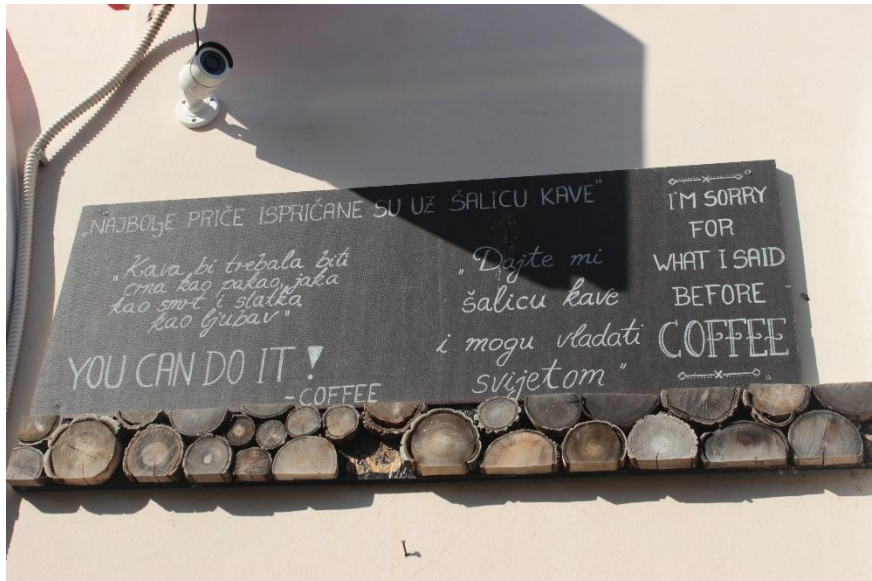 „NAJBOLJE PRIČE ISPRIČANE SU UZ ŠALICU KAVE"
„Kava bi trebala biti
crna kao pakao, jaka
kao smrt i slatka
kao ljubav"
YOU CAN DO IT!
-COFFEE
„Dajte mi
šalicu kave
i mogu vladati
svijetom"
I'M SORRY
FOR
WHAT I SAID
BEFORE
COFFEE